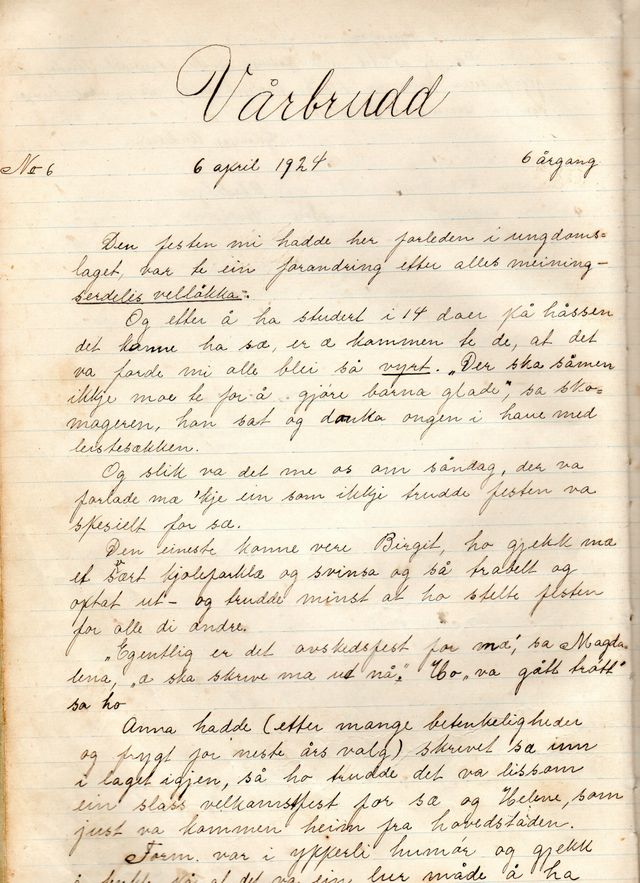 Vårbrudd
No 6 6 april 1924 6 årgang
Den festen mi hadde her forleden i ungdoms-
laget, var te ein forandring etter alles meining -
serdeles vellåkka -.
Og etter å ha studert i 14 daer på håssen
det kanne ha sæ, er æ kommen te de, at det
va forde mi alle blei så vyrt. „Der ska såmen
ikkje moe te for å gjöre barna glade", sa sko-
mageren, han sat og danka ongen i haue med
leistesækken.
Og slik va det me os om såndag, der va
forlade mæ 'kje ein som ikkje trudde festen va
spesielt for sæ.
Den eineste konne vere Birgit, ho gjekk mæ
et svært kjoleforklæ og svinsa og så travelt og
optat ut - og trudde minst at ho stelte festen
for alle di andre.
„Egentlig er det avskedsfest for mæ", sa Magda-
lena, „æ ska skrive mæ ud nå." Ho „va gått trött"
sa ho
Anna hadde (etter mange betenkeligheder
og frygt for neste års valg) skrevet sæ inn
i laget igjen, så ho trudde det va lissom
ein slass velkomstfest for sæ og Helene, som
just va kommen heim fra hovedstaden.
Form. var i ypperli humör og gjekk
at det va ein lur måde å ha